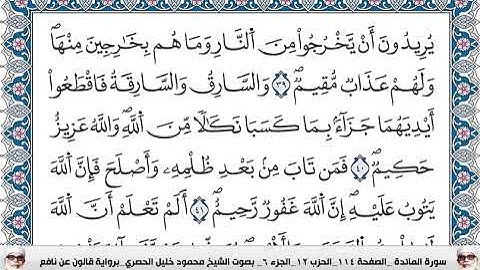 يُرِيدُونَ أَنْ يَّخْرُجُواْ مِنَ اَ۬لنّ۪ارِ وَمَا هُم بِخَٰرِجِينَ مِنْهَاۖ
وَلَهُمْ عَذَابٞ مُّقِيمٞۖ ٣٩ وَالسَّارِقُ وَالسَّارِقَةُ فَاقْطَعُواْ
أَيْدِيَهُمَا جَزَآءَۢ بِمَا كَسَبَا نَكَٰلاٗ مِّنَ اَ۬للَّهِۖ وَاللَّهُ عَزِيزٌ
حَكِيمٞۖ ٤٠ فَمَن تَابَ مِنۢ بَعْدِ ظُلْمِهِۦ وَأَصْلَحَ فَإِنَّ اَ۬للَّهَ
يَتُوبُ عَلَيْهِۖ إِنَّ اَ۬للَّهَ غَفُورٞ رَّحِيمٌۖ ٤١ أَلَمْ تَعْلَمَ اَنَّ اَ۬للَّهَ
سورة المائدة _الصفحة ١١٤_الحزب ١٢_الجزء ٦_ بصوت الشيخ محمود خليل الحصري_برواية قالون عن نافع